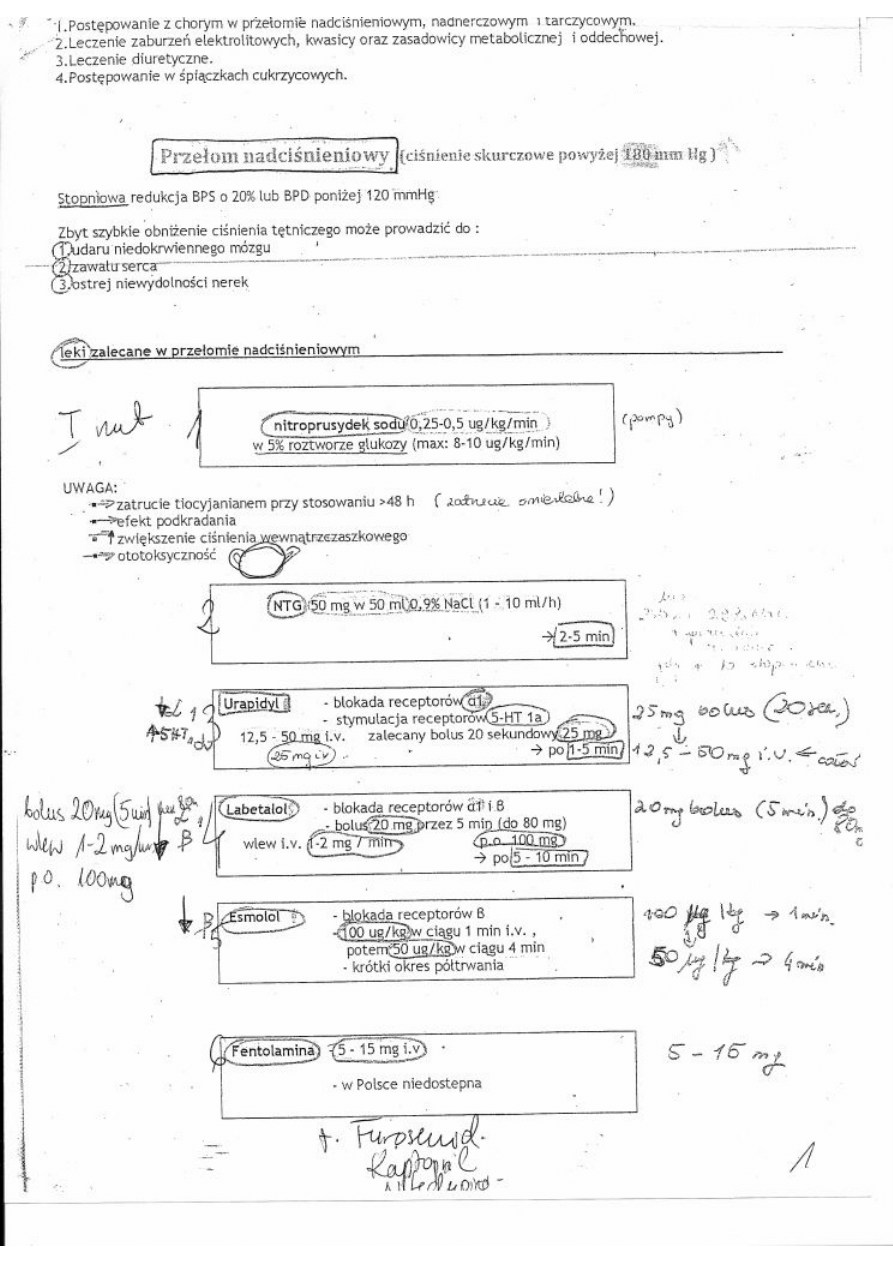 1.Postępowanie z chorym w przełomie nadciśnieniowym, nadnerczowym i tarczycowym.
2.Leczenie zaburzeń elektrolitowych, kwasicy oraz zasadowicy metabolicznej i oddechowej.
3.Leczenie diuretyczne.
4.Postępowanie w śpiączkach cukrzycowych.
Przełom nadciśnieniowy (ciśnienie skurczowe powyżej 180 mm Hg)
Stopniowa redukcja BPS o 20% lub BPD poniżej 120 mmHg
Zbyt szybkie obniżenie ciśnienia tętniczego może prowadzić do :
1.udaru niedokrwiennego mózgu
2.zawału serca
3.ostrej niewydolności nerek
leki zalecane w przełomie nadciśnieniowym
I rzut 1
nitroprusydek sodu 0,25-0,5 ug/kg/min (pompy)
w 5% roztworze glukozy (max: 8-10 ug/kg/min)
UWAGA:
zatrucie tiocyjanianem przy stosowaniu >48 h (zatrucie śmiertelne!)
efekt podkradania
↑ zwiększenie ciśnienia wewnątrzczaszkowego
ototoksyczność
2 NTG 50 mg w 50 ml 0,9% NaCl (1 - 10 ml/h)
→ 2-5 min
Urapidyl - blokada receptorów α1 25mg bolus (20sek.)
- stymulacja receptorów 5-HT 1a
12,5 - 50 mg i.v. zalecany bolus 20 sekundowy 25 mg
25 mg iv → po 1-5 min 12,5 - 50mg i.v. ←
bolus 20mg (5min) Labetalol - blokada receptorów α1 i B 20mg bolus (5 min.) do
- bolus 20 mg przez 5 min (do 80 mg)
wlew 1-2 mg/min ↓ B 4 wlew i.v. 1-2 mg / min p.o. 100 mg
p.o. 100mg → po 5 - 10 min
↓ B 5 Esmolol - blokada receptorów B 100 µg/kg → 1min.
- 100 ug/kg w ciągu 1 min i.v. ,
potem 50 ug/kg w ciągu 4 min 50 µg/kg → 4 min
- krótki okres półtrwania
6 Fentolamina - 5 - 15 mg i.v 5 - 15 mg
- w Polsce niedostepna
7. Furosemid.
Kaptopril
1